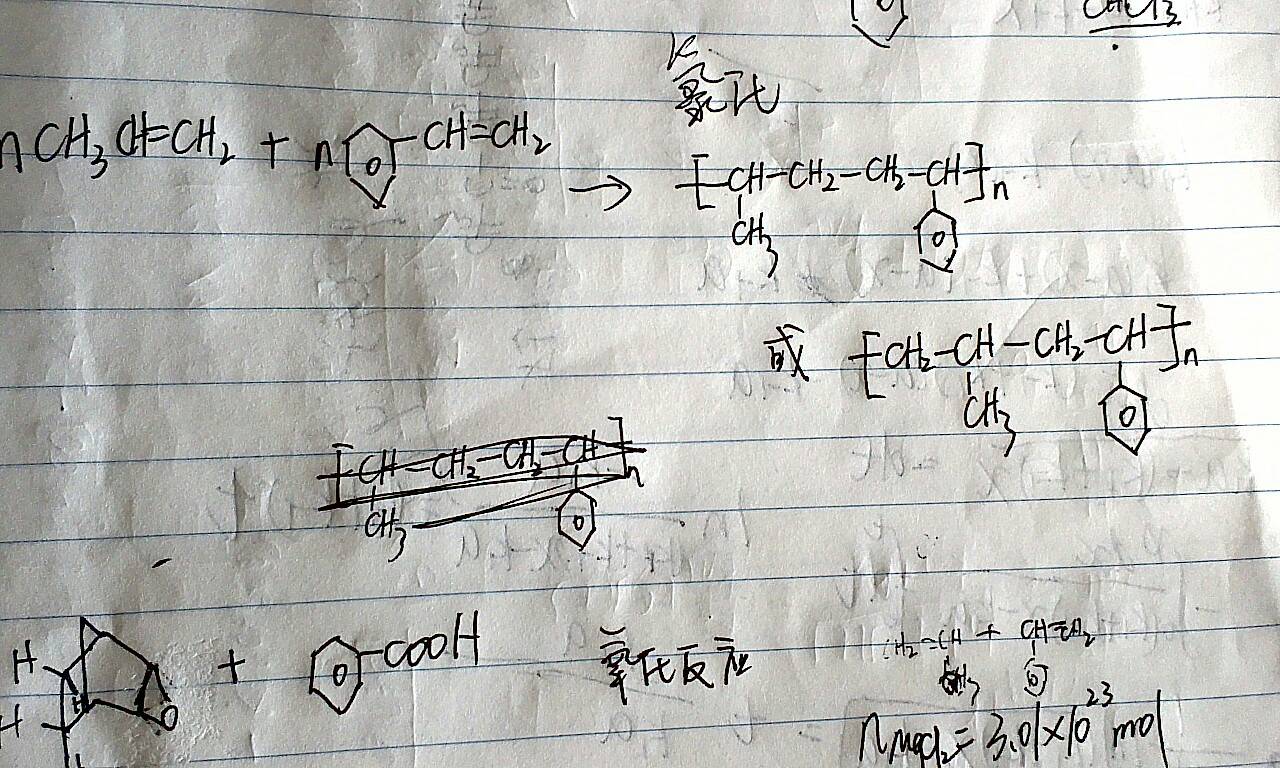 CHCl3
氧化
nCH3CH=CH2 + n CH=CH2 → [CH-CH2-CH2-CH]n
CH3
或 [CH2-CH-CH2-CH]n
CH3
[CH-CH2-CH2-CH]n
CH3
H + COOH 氧化反应
H O
CH2=CH + CH=CH2
CH3
nMgCl2=3.01×10^23 mol